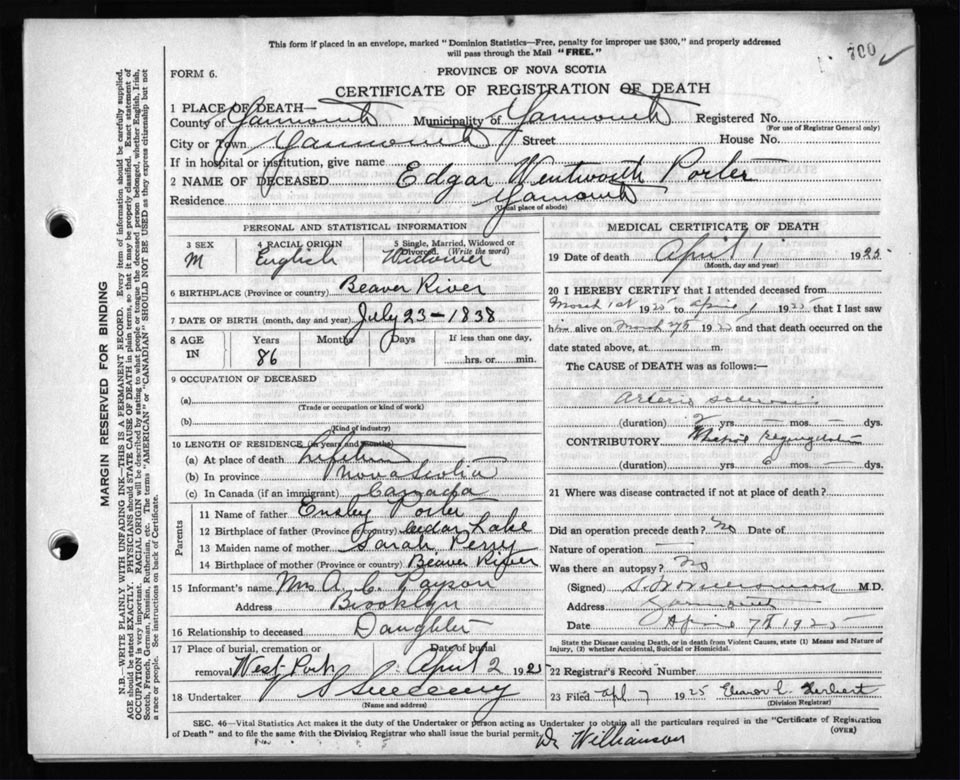 This form if placed in an envelope, marked "Dominion Statistics—Free, penalty for improper use $300," and properly addressed
will pass through the Mail "FREE."
700 ✓
FORM 6.
PROVINCE OF NOVA SCOTIA
CERTIFICATE OF REGISTRATION OF DEATH
1 PLACE OF DEATH—
County of Yarmouth Municipality of Yarmouth Registered No.
(For use of Registrar General only)
City or Town Yarmouth Street House No.
If in hospital or institution, give name
2 NAME OF DECEASED Edgar Wentworth Porter
Residence Yarmouth
(Usual place of abode)
MARGIN RESERVED FOR BINDING
N.B.—WRITE PLAINLY WITH UNFADING INK—THIS IS A PERMANENT RECORD. Every item of information should be carefully supplied.
AGE should be stated EXACTLY. PHYSICIANS should STATE CAUSE OF DEATH in plain terms, so that it may be properly classified. Exact statement of
OCCUPATION is very important. RACIAL ORIGIN will be described by stating to what people or tongue the deceased person belonged, whether English, Irish,
Scotch, French, German, Russian, Ruthenian, etc. The terms "AMERICAN" or "CANADIAN" SHOULD NOT BE USED as they express citizenship but not
a race or people. See instructions on back of Certificate.
PERSONAL AND STATISTICAL INFORMATION
3 SEX
M
4 RACIAL ORIGIN
English
5 Single, Married, Widowed or
Divorced. (Write the word)
Widower
6 BIRTHPLACE (Province or country) Beaver River
7 DATE OF BIRTH (month, day and year) July 23—1838
8 AGE IN Years Months Days If less than one day,
86 hrs. or min.
9 OCCUPATION OF DECEASED
(a)
(Trade or occupation or kind of work)
(b)
(Kind of industry)
10 LENGTH OF RESIDENCE (in years and months)
(a) At place of death Lifetime
(b) In province Nova Scotia
(c) In Canada (if an immigrant) Canada
Parents
11 Name of father Ensley Porter
12 Birthplace of father (Province or country) Cedar Lake
13 Maiden name of mother Sarah Perry
14 Birthplace of mother (Province or country) Beaver River
15 Informant's name Mrs A. C. Payson
Address Brooklyn
16 Relationship to deceased Daughter
17 Place of burial, cremation or Date of burial
removal West Port April 2 192
18 Undertaker Sweeney
(Name and address)
MEDICAL CERTIFICATE OF DEATH
19 Date of death April 1 1925
(Month, day and year)
20 I HEREBY CERTIFY that I attended deceased from
March 1st 1925 to April 1 1925 that I last saw
him alive on March 1925 and that death occurred on
the date stated above, at m.
The CAUSE of DEATH was as follows:—
Arterio sclerosis
(duration) 2 yrs. mos. dys.
CONTRIBUTORY regurgitation
(duration) yrs. 6 mos. dys.
21 Where was disease contracted if not at place of death?
Did an operation precede death? No Date of
Nature of operation —
Was there an autopsy? No
(Signed) M.D.
Address Yarmouth
Date April 7th 1925
State the Disease causing Death, or in death from Violent Causes, state (1) Means and Nature of
Injury, (2) whether Accidental, Suicidal or Homicidal.
22 Registrar's Record Number
23 Filed Apl 7 1925 Eleanor C. Herbert
(Division Registrar)
SEC. 46—Vital Statistics Act makes it the duty of the Undertaker or person acting as Undertaker to obtain all the particulars required in the "Certificate of Registration
of Death" and to file the same with the Division Registrar who shall issue the burial permit.
(OVER)
Dr Williamson